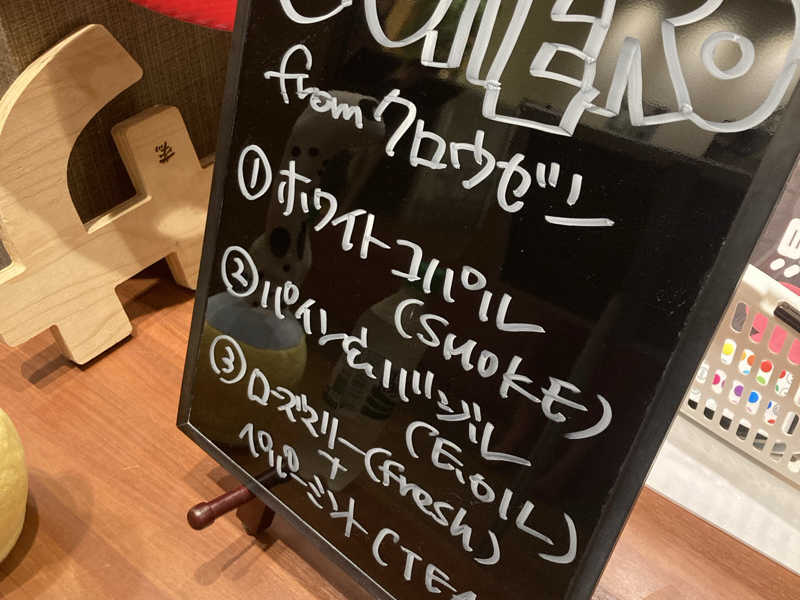 from クロウゼン
①ホワイトコパル
(SMOKE)
②パイン&バジル
(E.OIL)
③ローズマリー(fresh)
+
ペパーミント(TEA